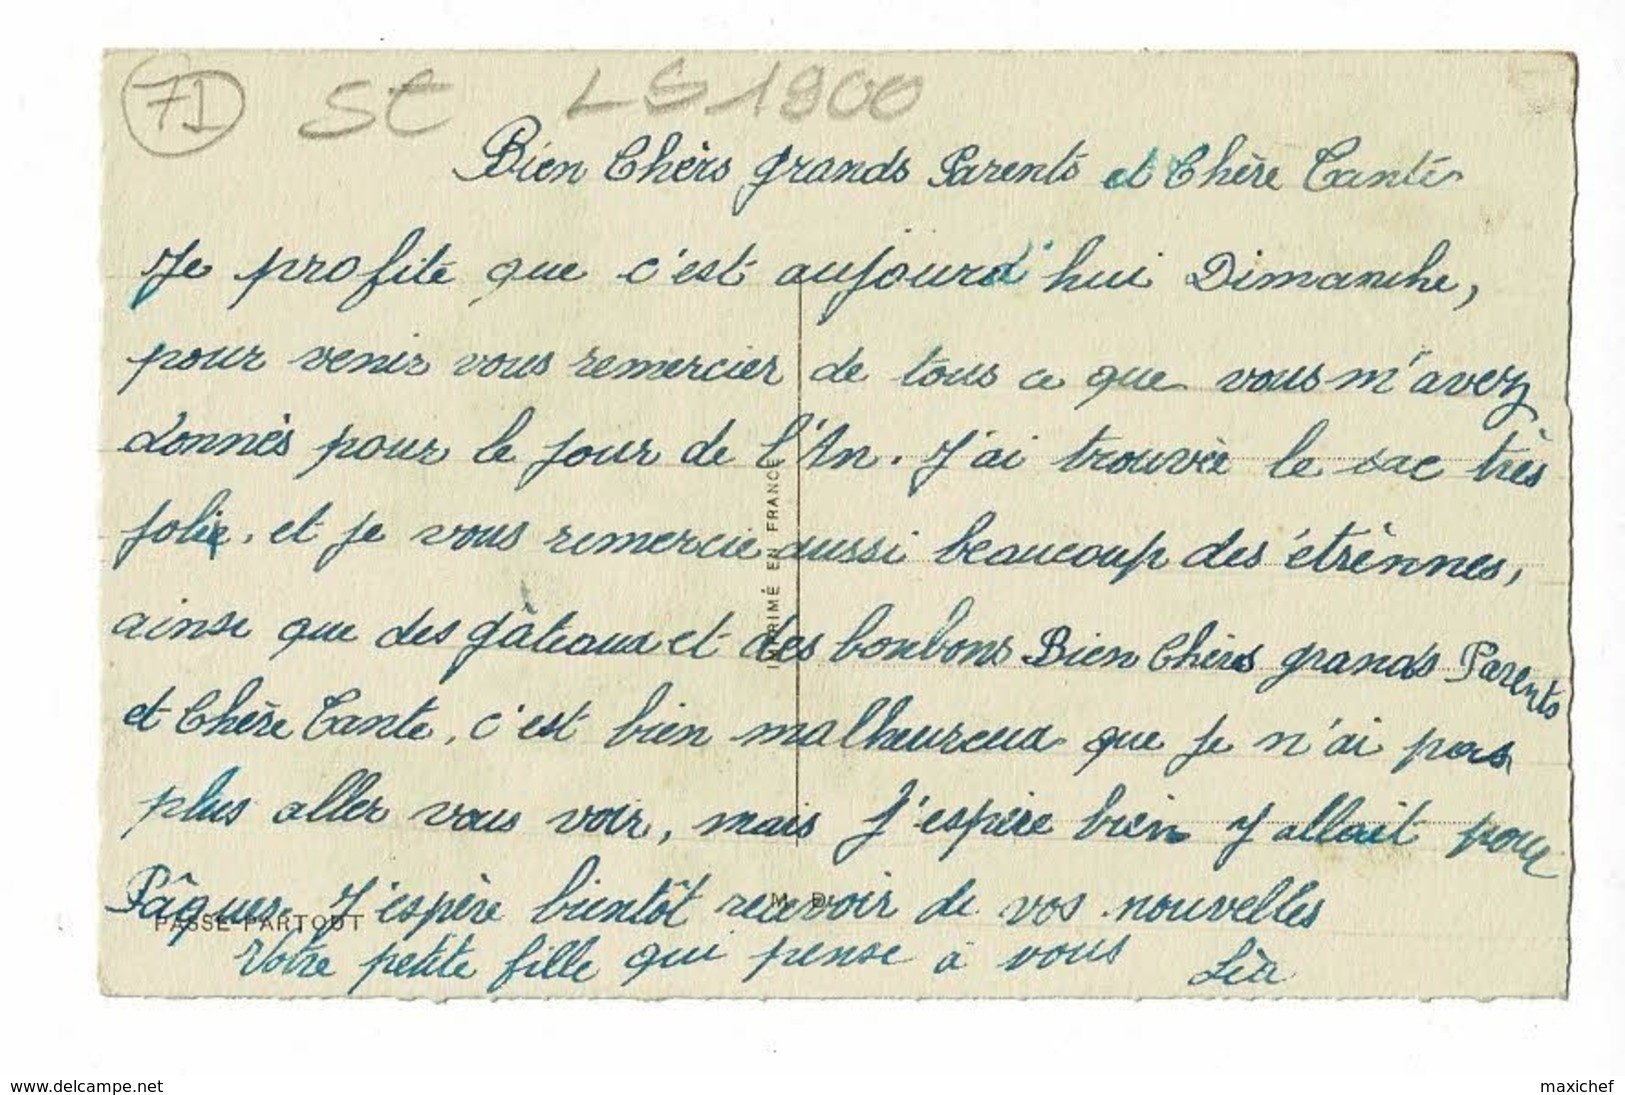 71 St LS 1900
Bien Chèrs grands Parents et Chère Tante
Je profite que c'est aujourd'hui Dimanche,
pour venir vous remercier de tous ce que vous m'avez
donnés pour le jour de l'An. J'ai trouvée le sac très
jolie, et je vous remercie aussi beaucoup des étrènnes,
ainse que des gâteaux et des bonbons Bien Chèrs grands Parents
et Chère Tante, c'est bien malheureux que je n'ai pas
plus aller vous voir, mais j'espère bien y allait pour
Pâques, J'espère bientôt recevoir de vos nouvelles
Votre petite fille qui pense à vous Lèa
IMPRIMÉ EN FRANCE
M. D.
PASSE-PARTOUT
www.delcampe.net
maxichef